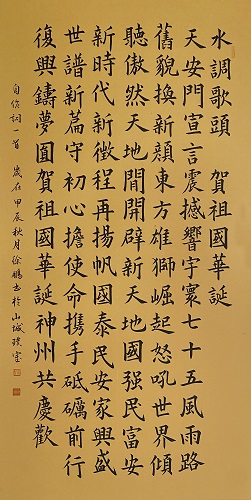 水調歌頭 賀祖國華誕
天安門宣言震撼響宇寰七十五風雨路
舊貌換新顏東方雄獅崛起怒吼世界傾
聽傲然天地間開闢新天地國強民富安
新時代新徵程再揚帆國泰民安家興盛
世譜新篇守初心擔使命攜手砥礪前行
復興鑄夢圓賀祖國華誕神州共慶歡
自作詞一首 歲在甲辰秋月徐鵬書於山城璞室